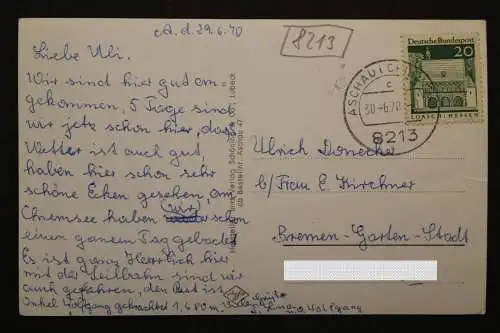 A. d. 29.6.70
8213
Liebe Uli.
Wir sind hier gut an=
gekommen, 5 Tage sind
wir jetz schon hier, das
Wetter ist auch gut,
haben hier schon sehr
schöne Ecken gesehen, am
Chiemsee haben wir schon
einen ganzen Tag gebadet
Es ist ganz Herrlich hier
mit der Seilbahn sind wir
auch gefahren, den Rest ist
Onkel Wolfgang
u. Wolfgang
Deutsche Bundespost
20
LORSCH / HESSEN
ASCHAU
30.-6.70
8213
Ulrich Donecker
b/Frau E. Kirchner
Bremen-Garten-Stadt